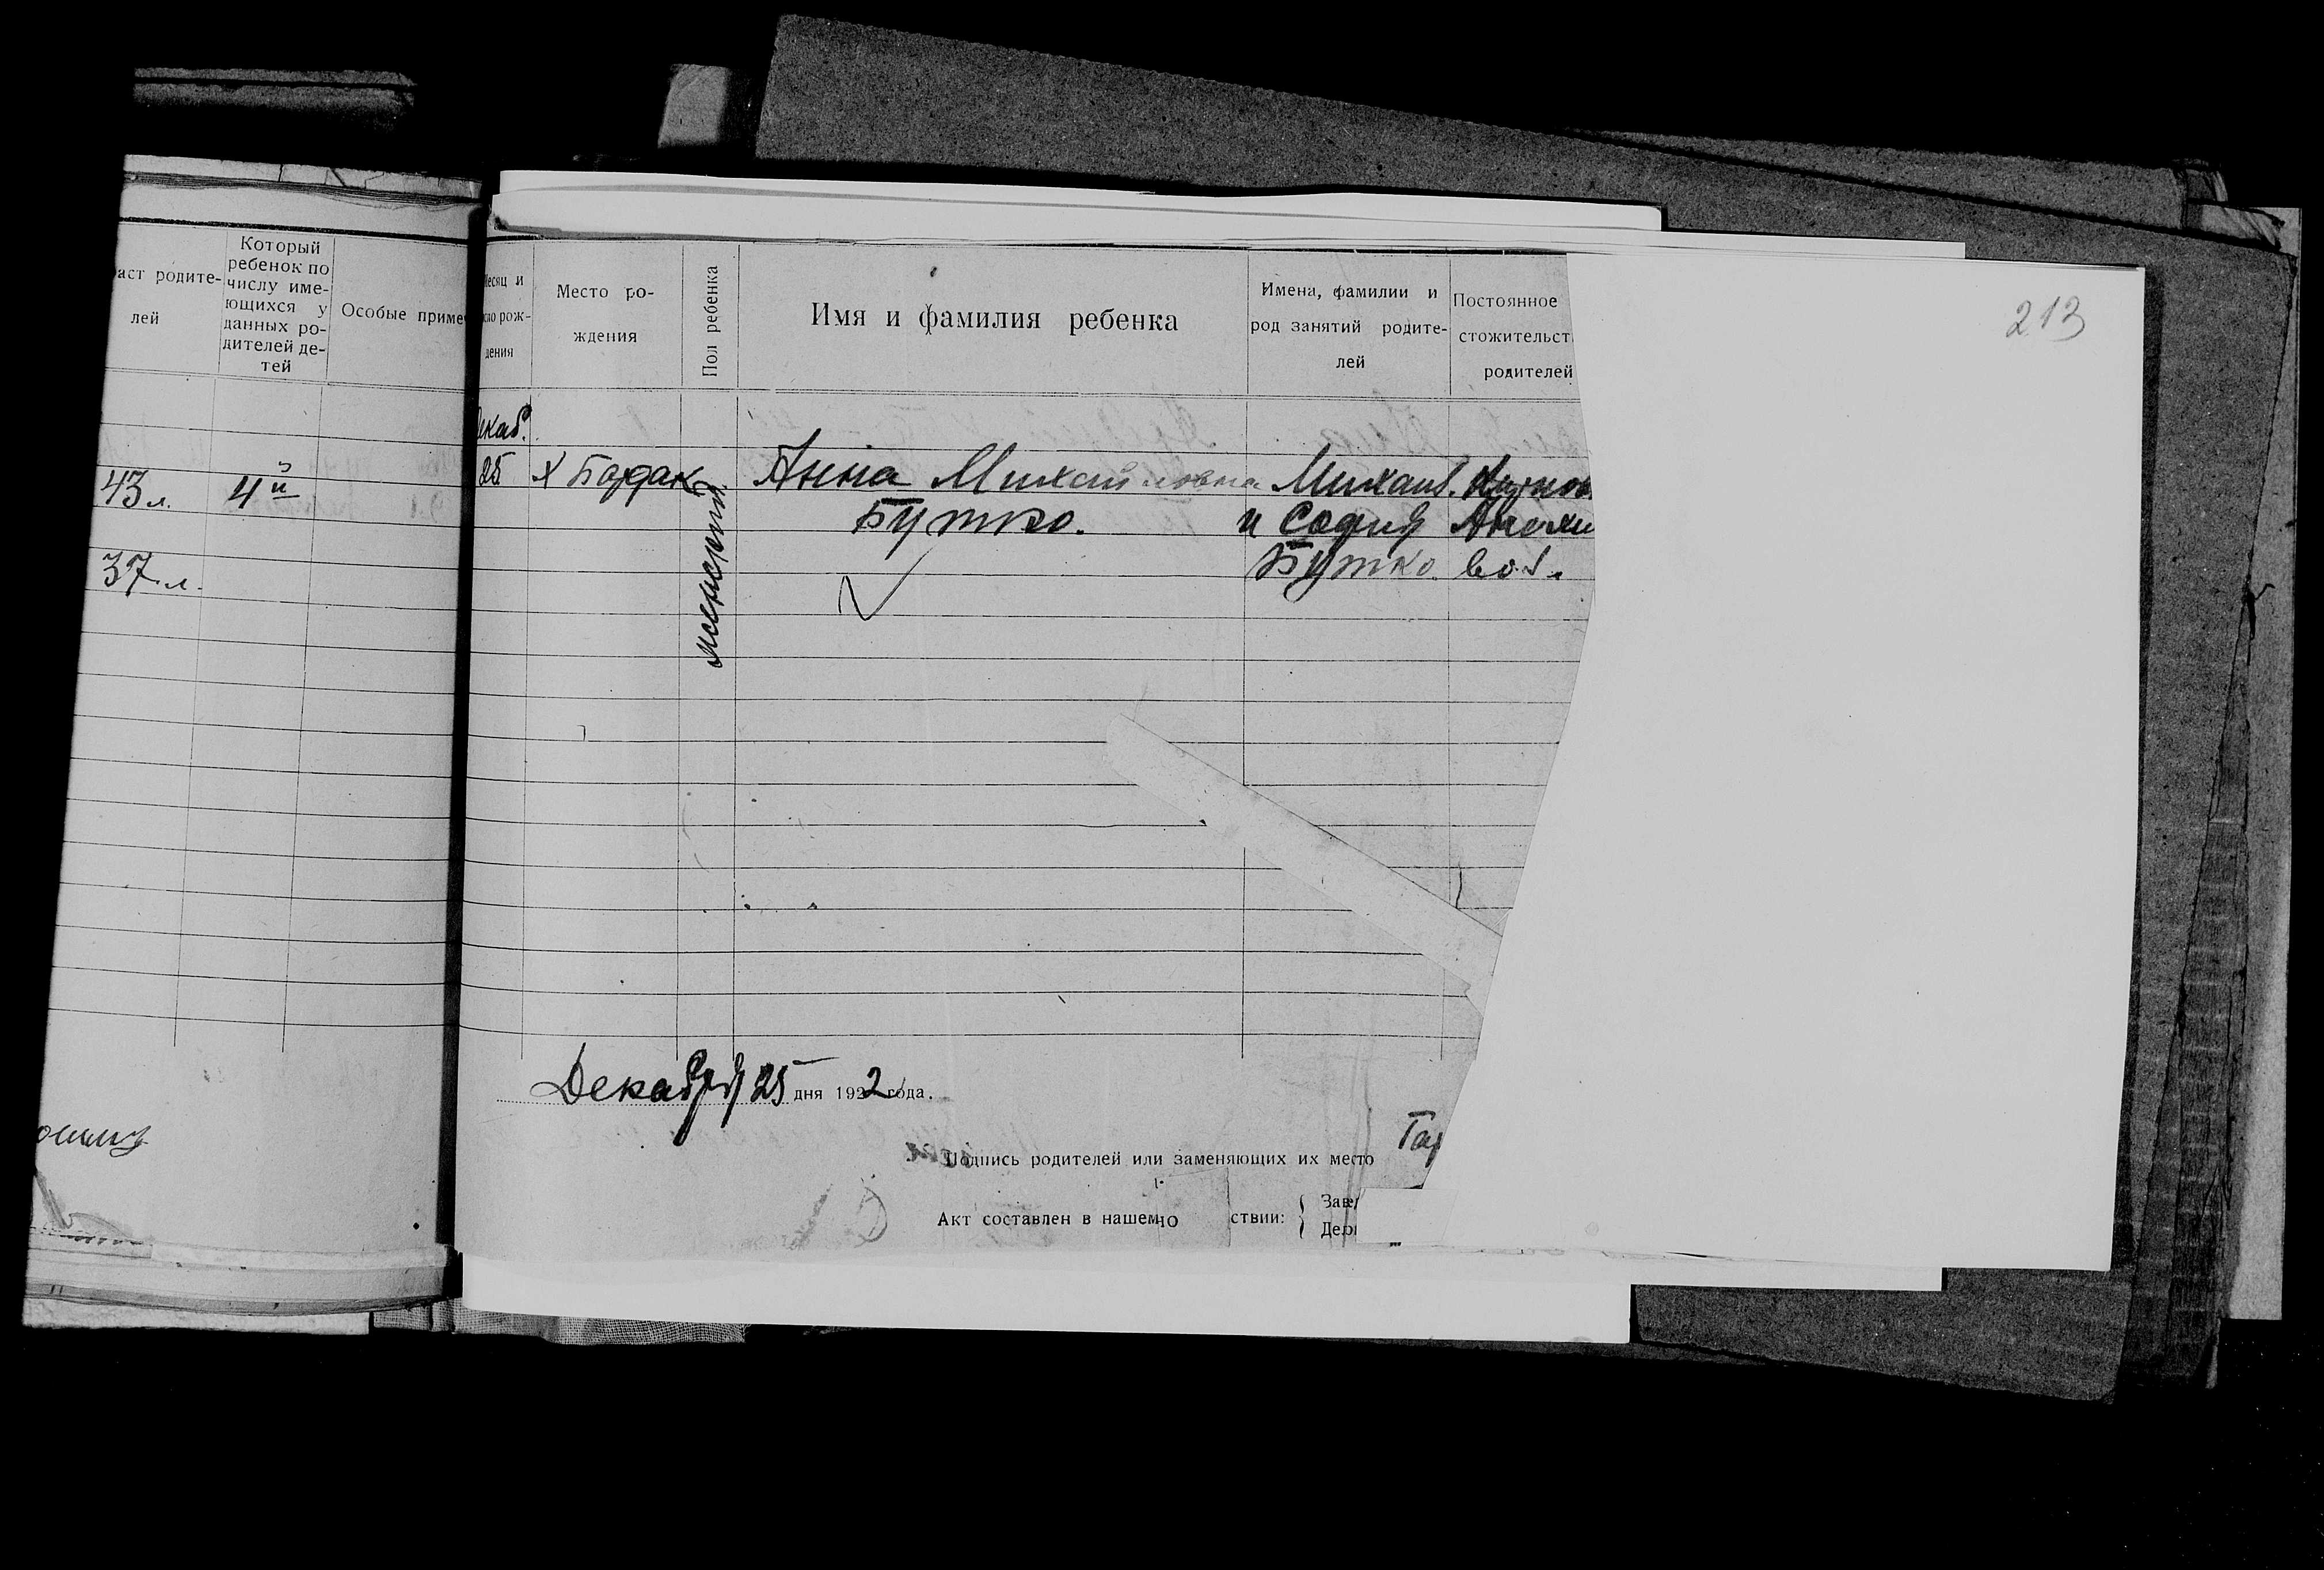 аст родите-
лей
Который
ребенок по
числу име-
ющихся у
данных ро-
дителей де-
тей
Особые приме
43 л. 4й
37 л.
213
Месяц и
число рож-
дения
Место ро-
ждения
Пол ребенка
Имя и фамилия ребенка
Имена, фамилии и
род занятий родите-
лей
Постоянное
стожительст
родителей
екаб.
25 х Бардак женский Анна Михайловна Михаил
Бутко. и София
Бутко. вол.
Декабря 25 дня 1922 года.
Подпись родителей или заменяющих их место
Акт составлен в нашем
ствии:
Зав